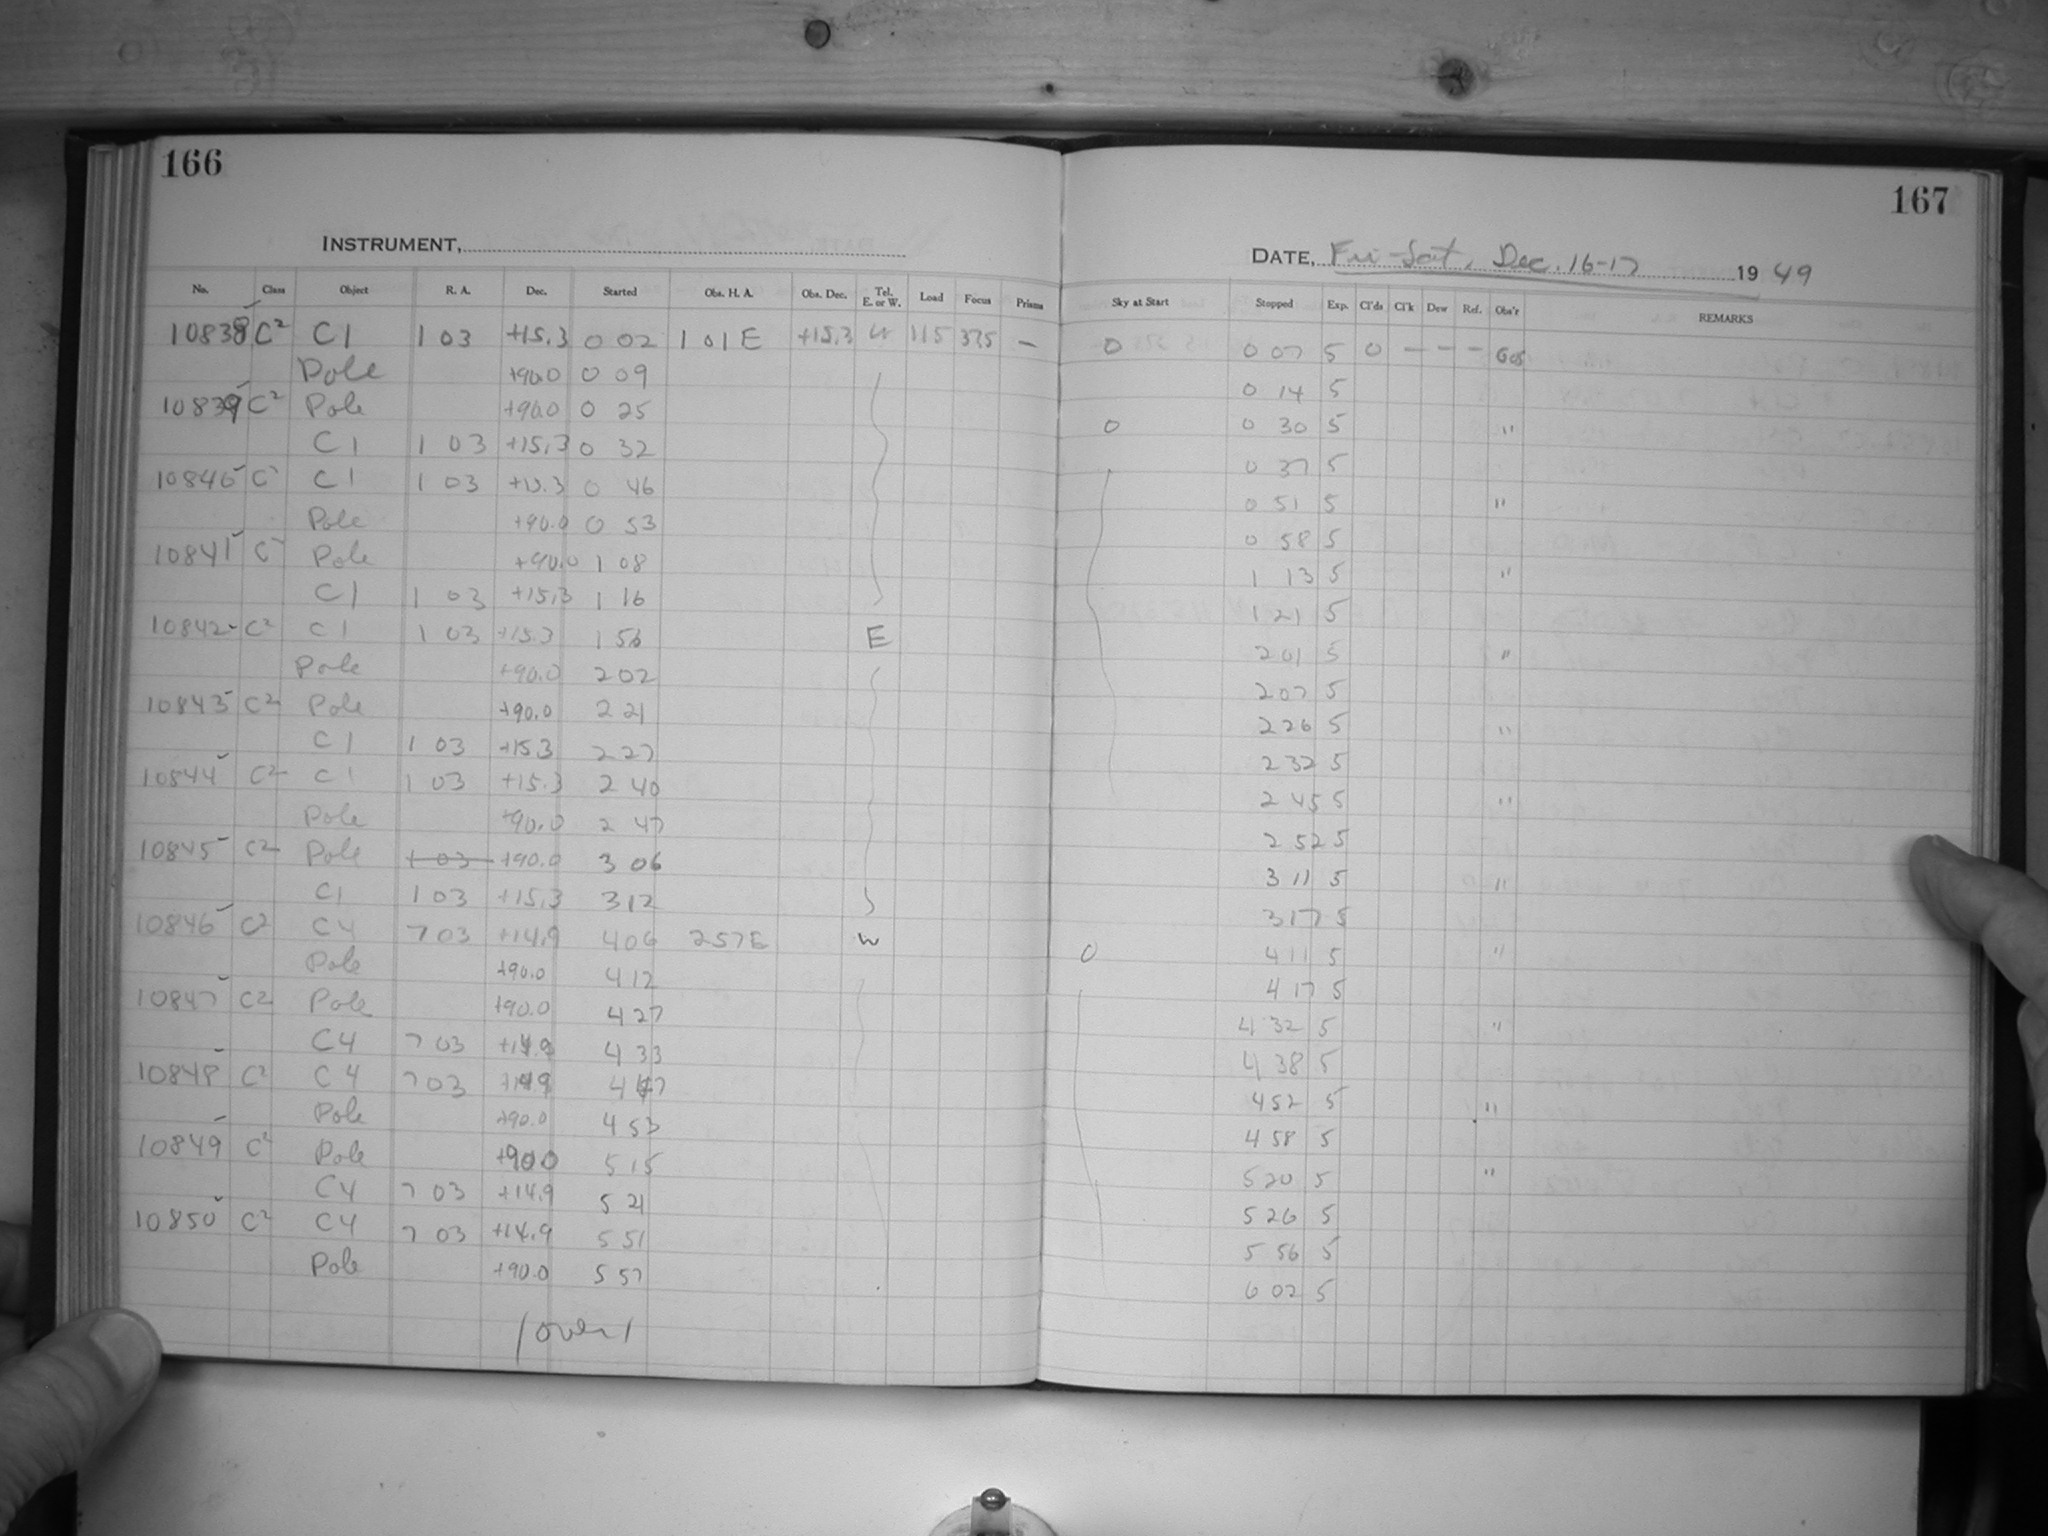 166
INSTRUMENT,
No. Class Object R. A. Dec. Started Obs. H. A. Obs. Dec. Tel. E. or W. Load Focus Prisms
10838 C2 C1 1 03 +15.3 0 02 1 01 E +15.3 W 115 375 —
Pole +90.0 0 09
10839 C2 Pole +90.0 0 25
C1 1 03 +15.3 0 32
10840 C2 C1 1 03 +15.3 0 46
Pole +90.0 0 53
10841 C2 Pole +90.0 1 08
C1 1 03 +15.3 1 16
10842 C2 C1 1 03 +15.3 1 56 E
Pole +90.0 2 02
10843 C2 Pole +90.0 2 21
C1 1 03 +15.3 2 27
10844 C2 C1 1 03 +15.3 2 40
Pole +90.0 2 47
10845 C2 Pole 1 03 +90.0 3 06
C1 1 03 +15.3 3 12
10846 C2 C4 7 03 +14.9 4 06 2 57 E W
Pole +90.0 4 12
10847 C2 Pole +90.0 4 27
C4 7 03 +14.9 4 33
10848 C2 C4 7 03 +14.9 4 47
Pole +90.0 4 53
10849 C2 Pole +90.0 5 15
C4 7 03 +14.9 5 21
10850 C2 C4 7 03 +14.9 5 51
Pole +90.0 5 57
/over/
167
DATE, Fri-Sat, Dec. 16-17 1949
Sky at Start Stopped Exp. Cl'ds Cl'k Dew Ref. Obs'r REMARKS
0 0 07 5 0 — — —
0 14 5
0 0 30 5 "
0 37 5
0 51 5 "
0 58 5
1 13 5 "
1 21 5
2 01 5 "
2 07 5
2 26 5 "
2 32 5
2 45 5 "
2 52 5
3 11 5 "
3 17 5
0 4 11 5 "
4 17 5
4 32 5 "
4 38 5
4 52 5 "
4 58 5
5 20 5 "
5 26 5
5 56 5
6 02 5